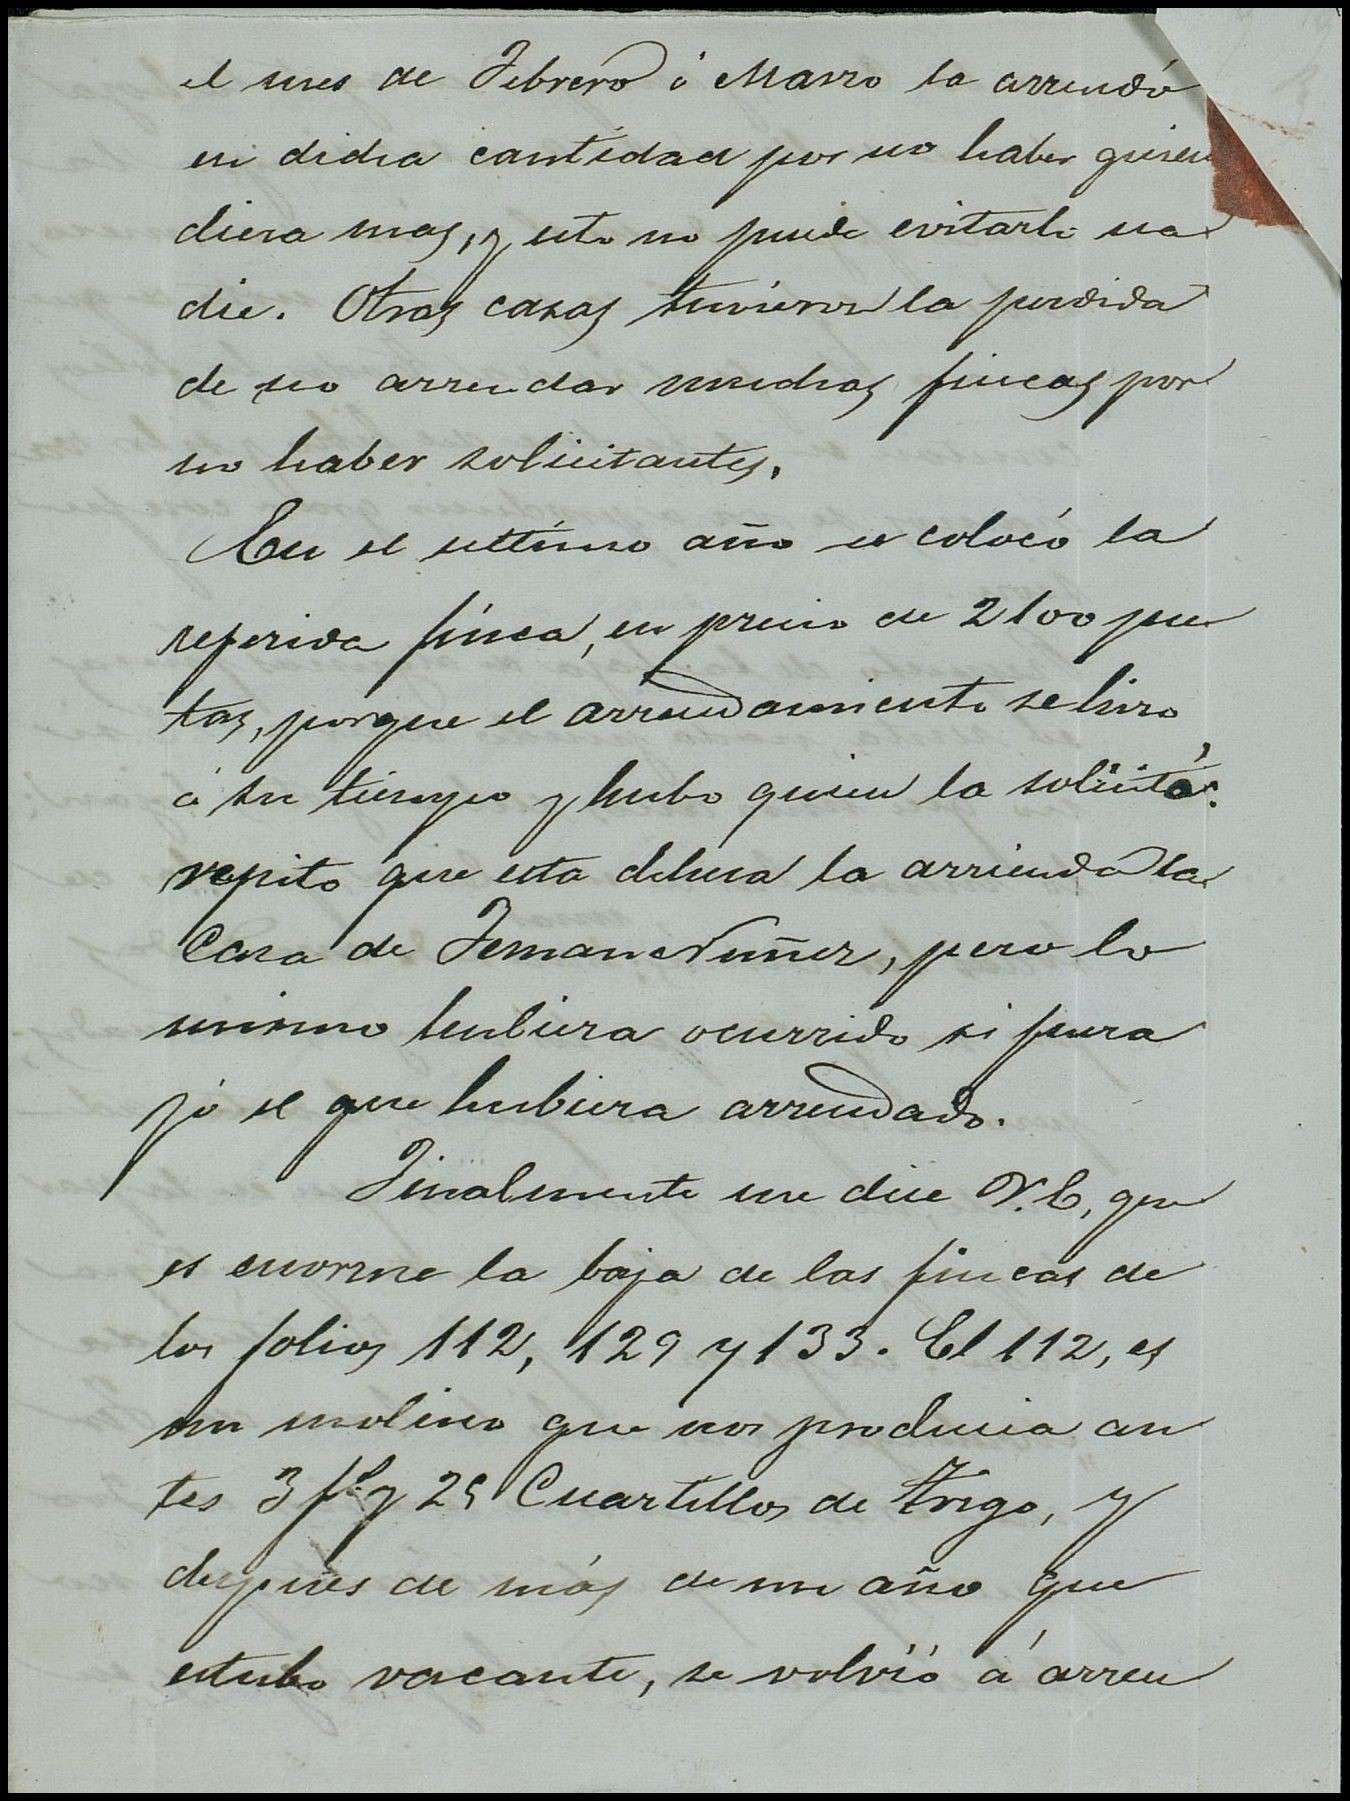 el mes de Febrero ó Marzo la arrendó
en dicha cantidad por no haber quien
diera mas, y esto no puede evitarlo na
die. Otras casas tuvieron la perdida
de no arrendar muchas fincas por
no haber solicitantes.
En el ultimo año se colocó la
referida finca, en precio de 2100 pese
tas, porque el arrendamiento se hizo
á su tiempo y hubo quien la solicitó:
repito que esta dehesa la arrienda la
Casa de Fernan Nuñez, pero lo
mismo hubiera ocurrido si fuera
yó el que hubiera arrendado.
Finalmente me dice V. E, que
es enorme la baja de las fincas de
los folios 112, 129 y 133. El 112, es
un molino que nos producia an
tes 3 f.s y 25 Cuartillos de trigo, y
después de más de un año que
estubo vacante, se volvió á arren